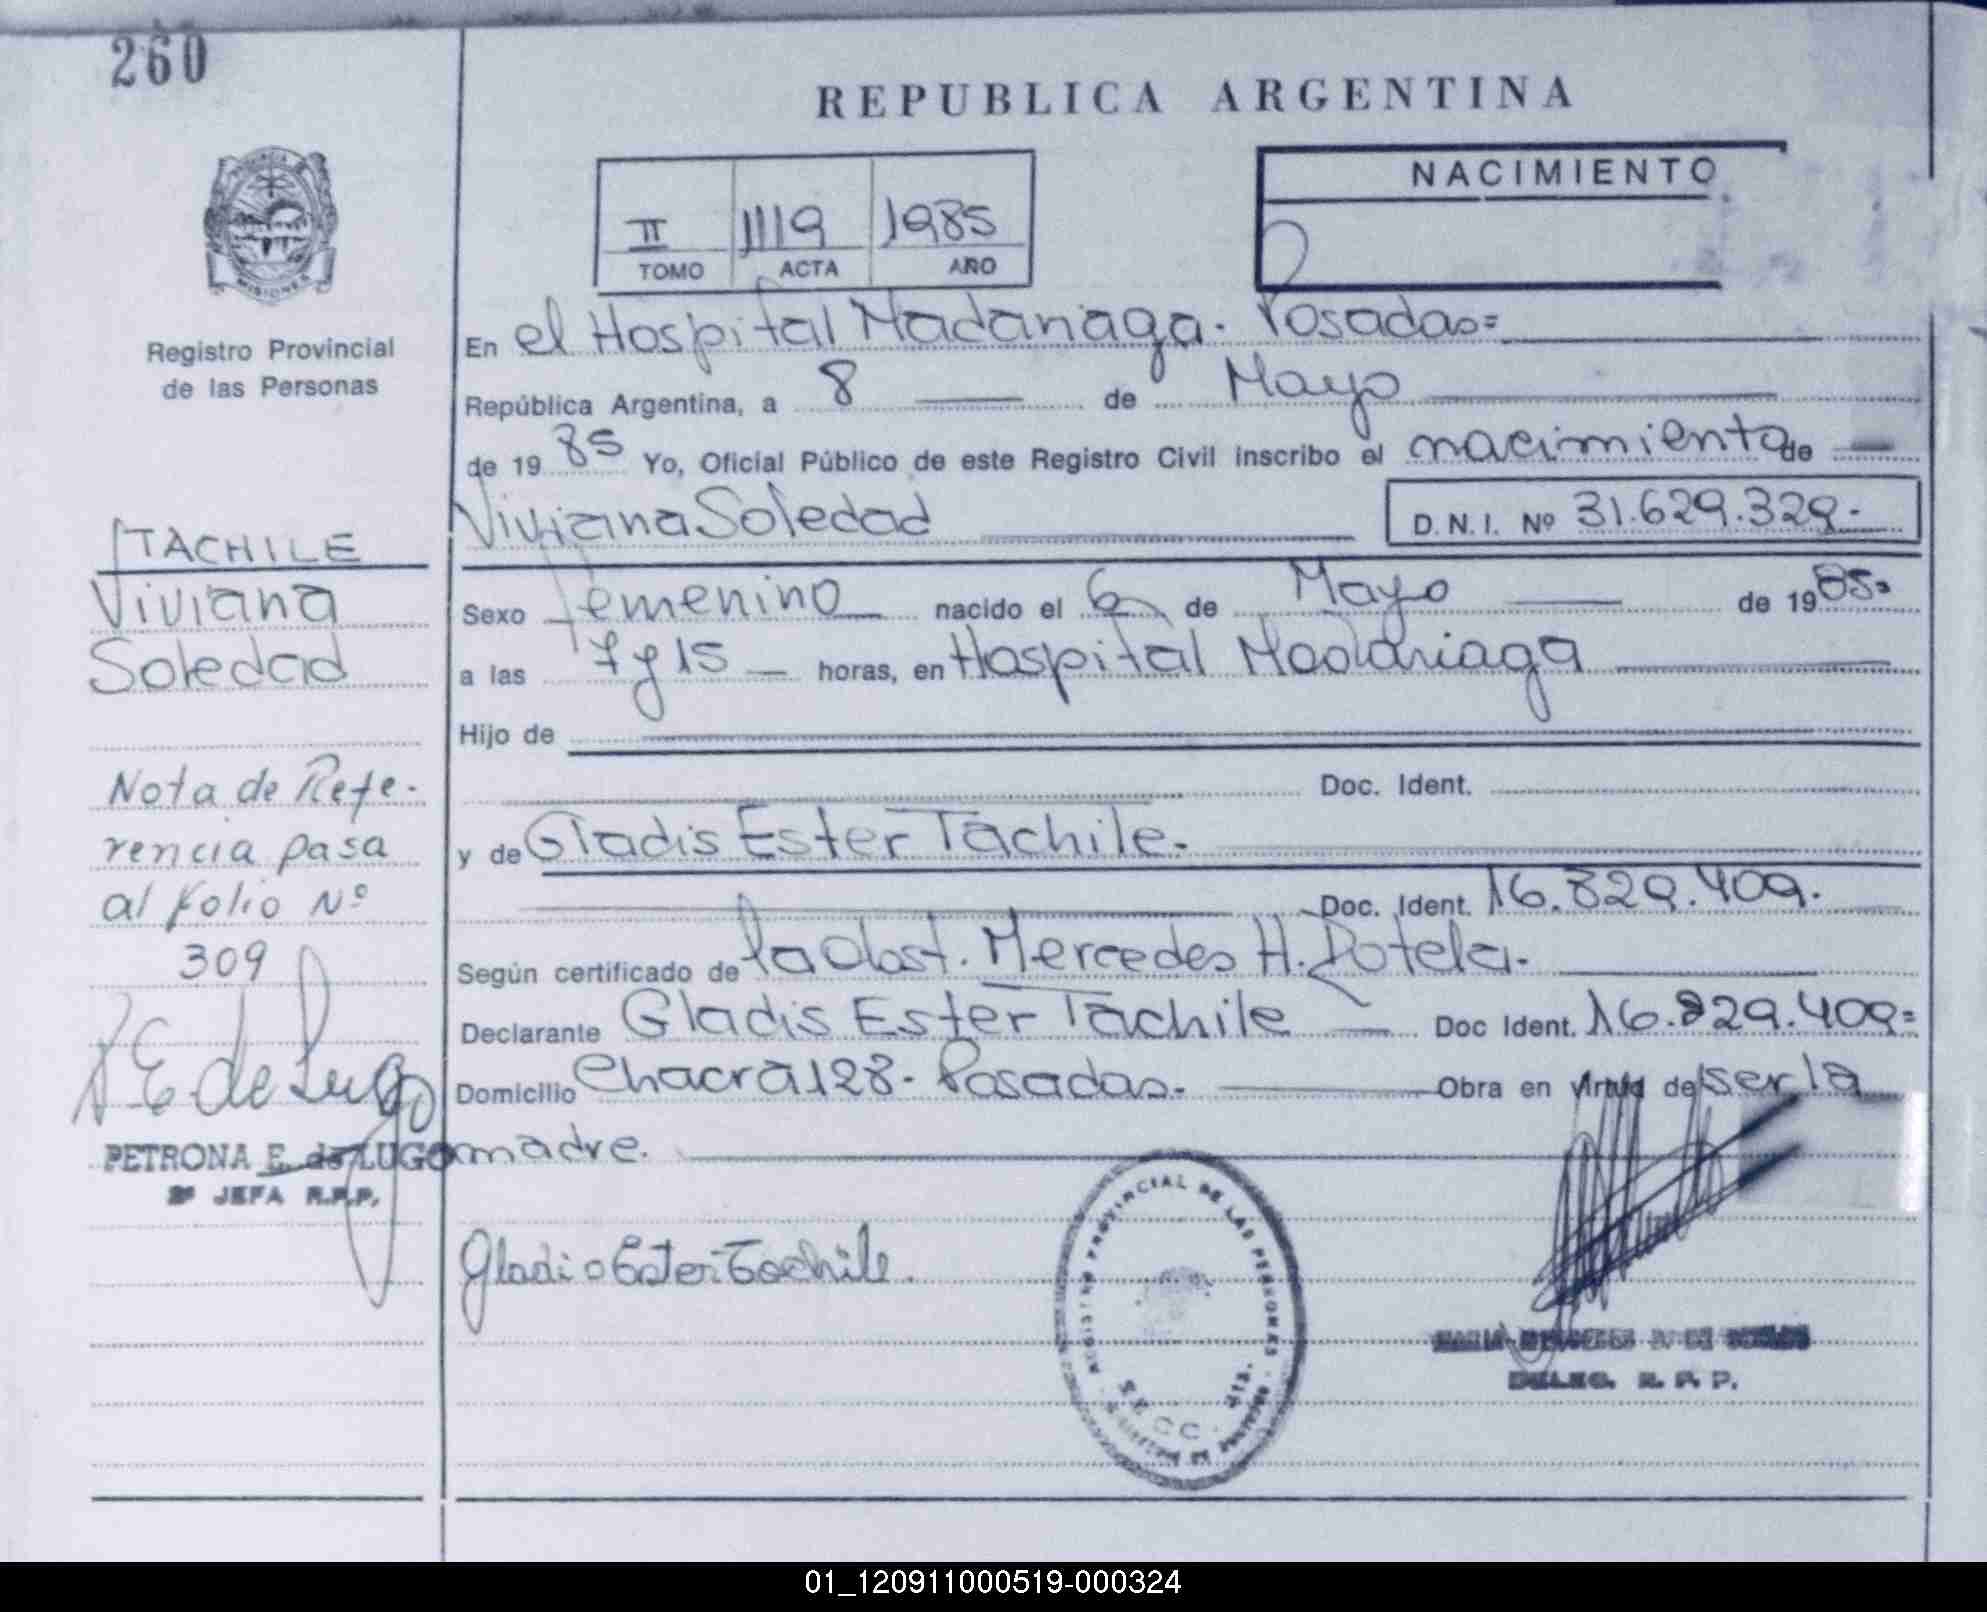 260
REPUBLICA ARGENTINA
PROVINCIA DE
MISIONES
Registro Provincial
de las Personas
II 1119 1985
TOMO ACTA AÑO
NACIMIENTO
En el Hospital Madariaga. Posadas=
República Argentina, a 8 de Mayo
de 1985 Yo, Oficial Público de este Registro Civil inscribo el nacimiento de
Viviana Soledad D.N.I. Nº 31.629.329.-
TACHILE
Viviana
Soledad
Sexo Femenino nacido el 6 de Mayo de 1985=
a las 7 y 15 horas, en Hospital Madariaga
Hijo de
Doc. Ident.
y de Gladis Ester Tachile.-
Doc. Ident. 16.829.409.
Según certificado de la Obst. Mercedes H. Dotela.-
Declarante Gladis Ester Tachile Doc Ident. 16.829.409=
Domicilio Chacra 128.- Posadas.- Obra en virtud de ser la
madre.
Nota de Refe-
rencia pasa
al folio Nº
309
P E. de Lugo
PETRONA E. de LUGO
2ª JEFA R.P.P.
Gladis Ester Tachile.
REGISTRO PROVINCIAL DE LAS PERSONAS
DELEG. R. P. P.
01_120911000519-000324